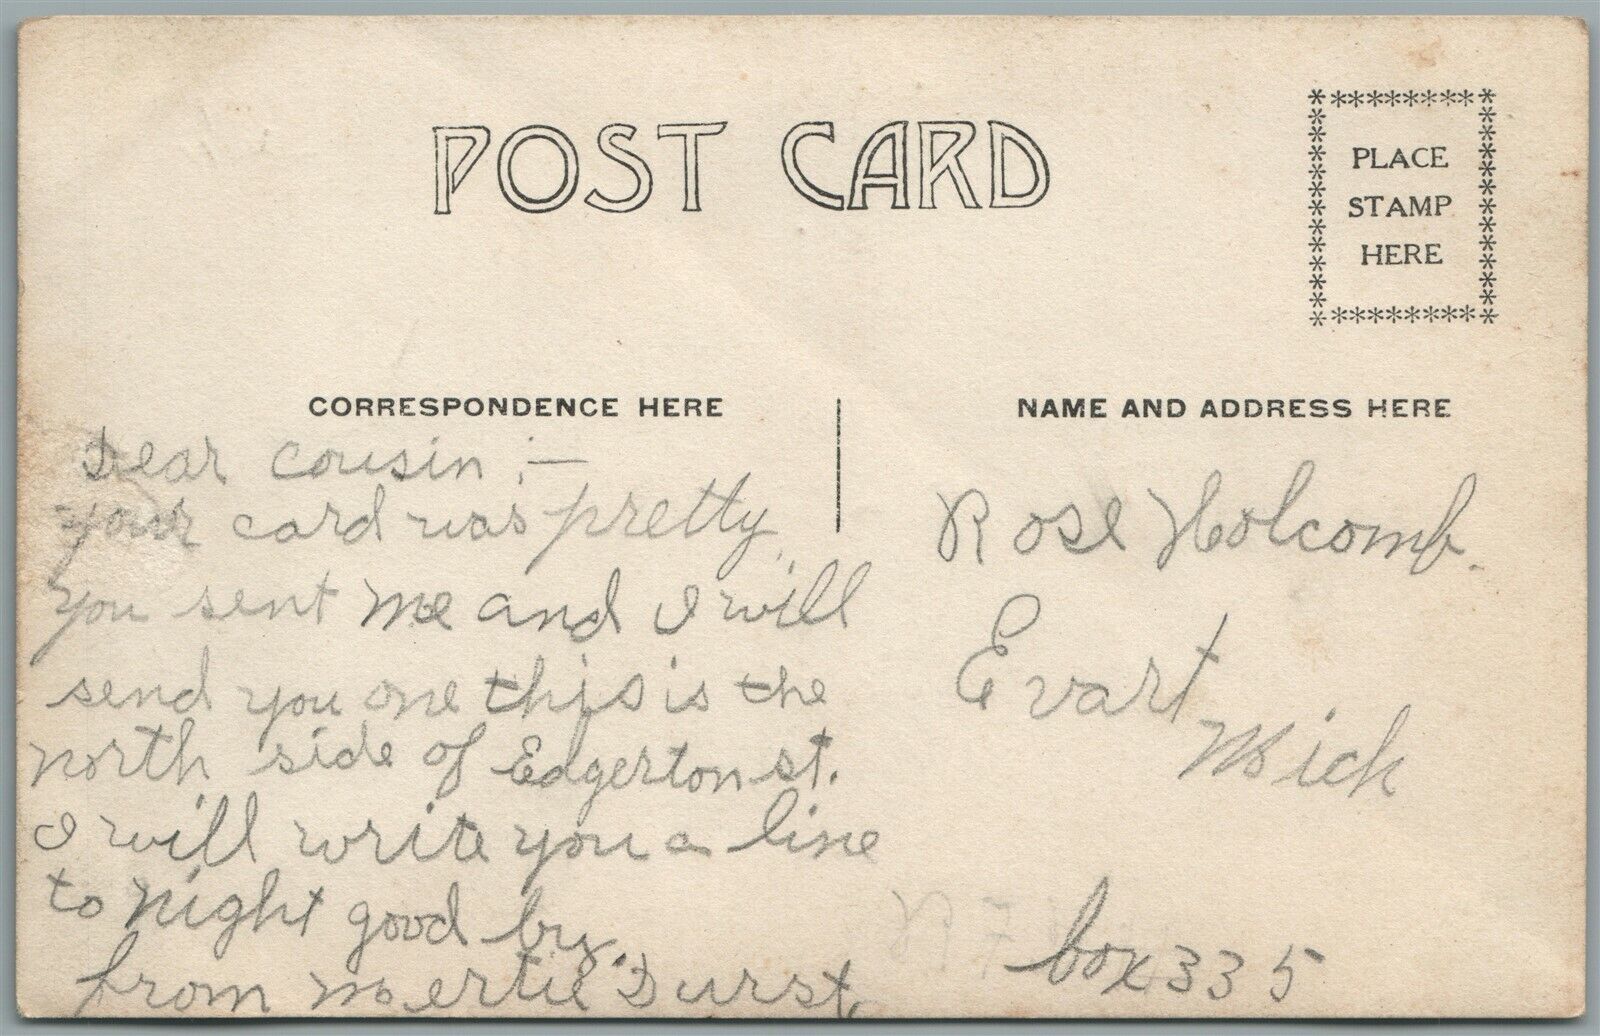 POST CARD
PLACE
STAMP
HERE
CORRESPONDENCE HERE
NAME AND ADDRESS HERE
Dear cousin :—
your card was pretty
you sent me and I will
send you one this is the
north side of Edgerton st.
I will write you a line
to night good by.
from Mertie Durst.
Rose Holcomb.
Evart
Mich
box 335